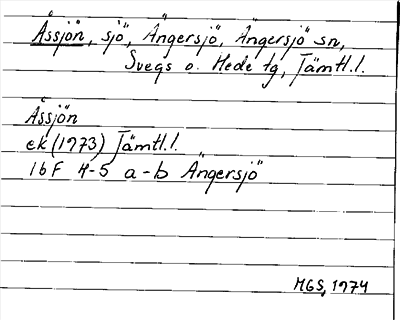 Åssjön, sjö, Ängersjö, Ängersjö sn,
Svegs o. Hede tg, Jämtl.l.
Åssjön
ek (1973) Jämtl.l.
16F 4-5 a-b Ängersjö
MGS, 1974